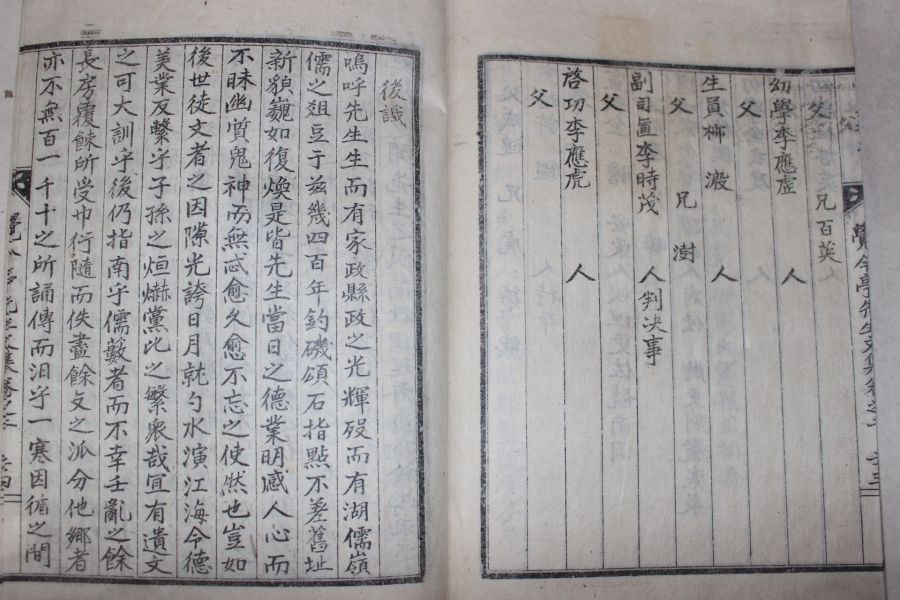 父 兄百英 人
幼學李應虛 人
父
生員柳 溵 人
父 兄 澍
副司直李時茂 人 判决事
父
啓功李應虎 人
父
後識
嗚呼先生生而有家政縣政之光輝歿而有湖儒嶺
儒之俎豆于玆幾四百年釣磯頌石指點不差舊址
新貌巍如復煥是皆先生當日之德業明感人心而
不昧幽質鬼神而無忒愈久愈不忘之使然也豈如
後世徒文者之因隙光誇日月就勺水演江海今德
美業反繫乎子孫之烜爀黨比之繁衆哉宜有遺文
之可大訓乎後仍指南乎儒藪者而不幸壬亂之餘
長房覆餗所受巾衍隨而佚盡餘攴之派分他鄉者
亦不無百一千十之所誦傳而汨乎一寒因循之間